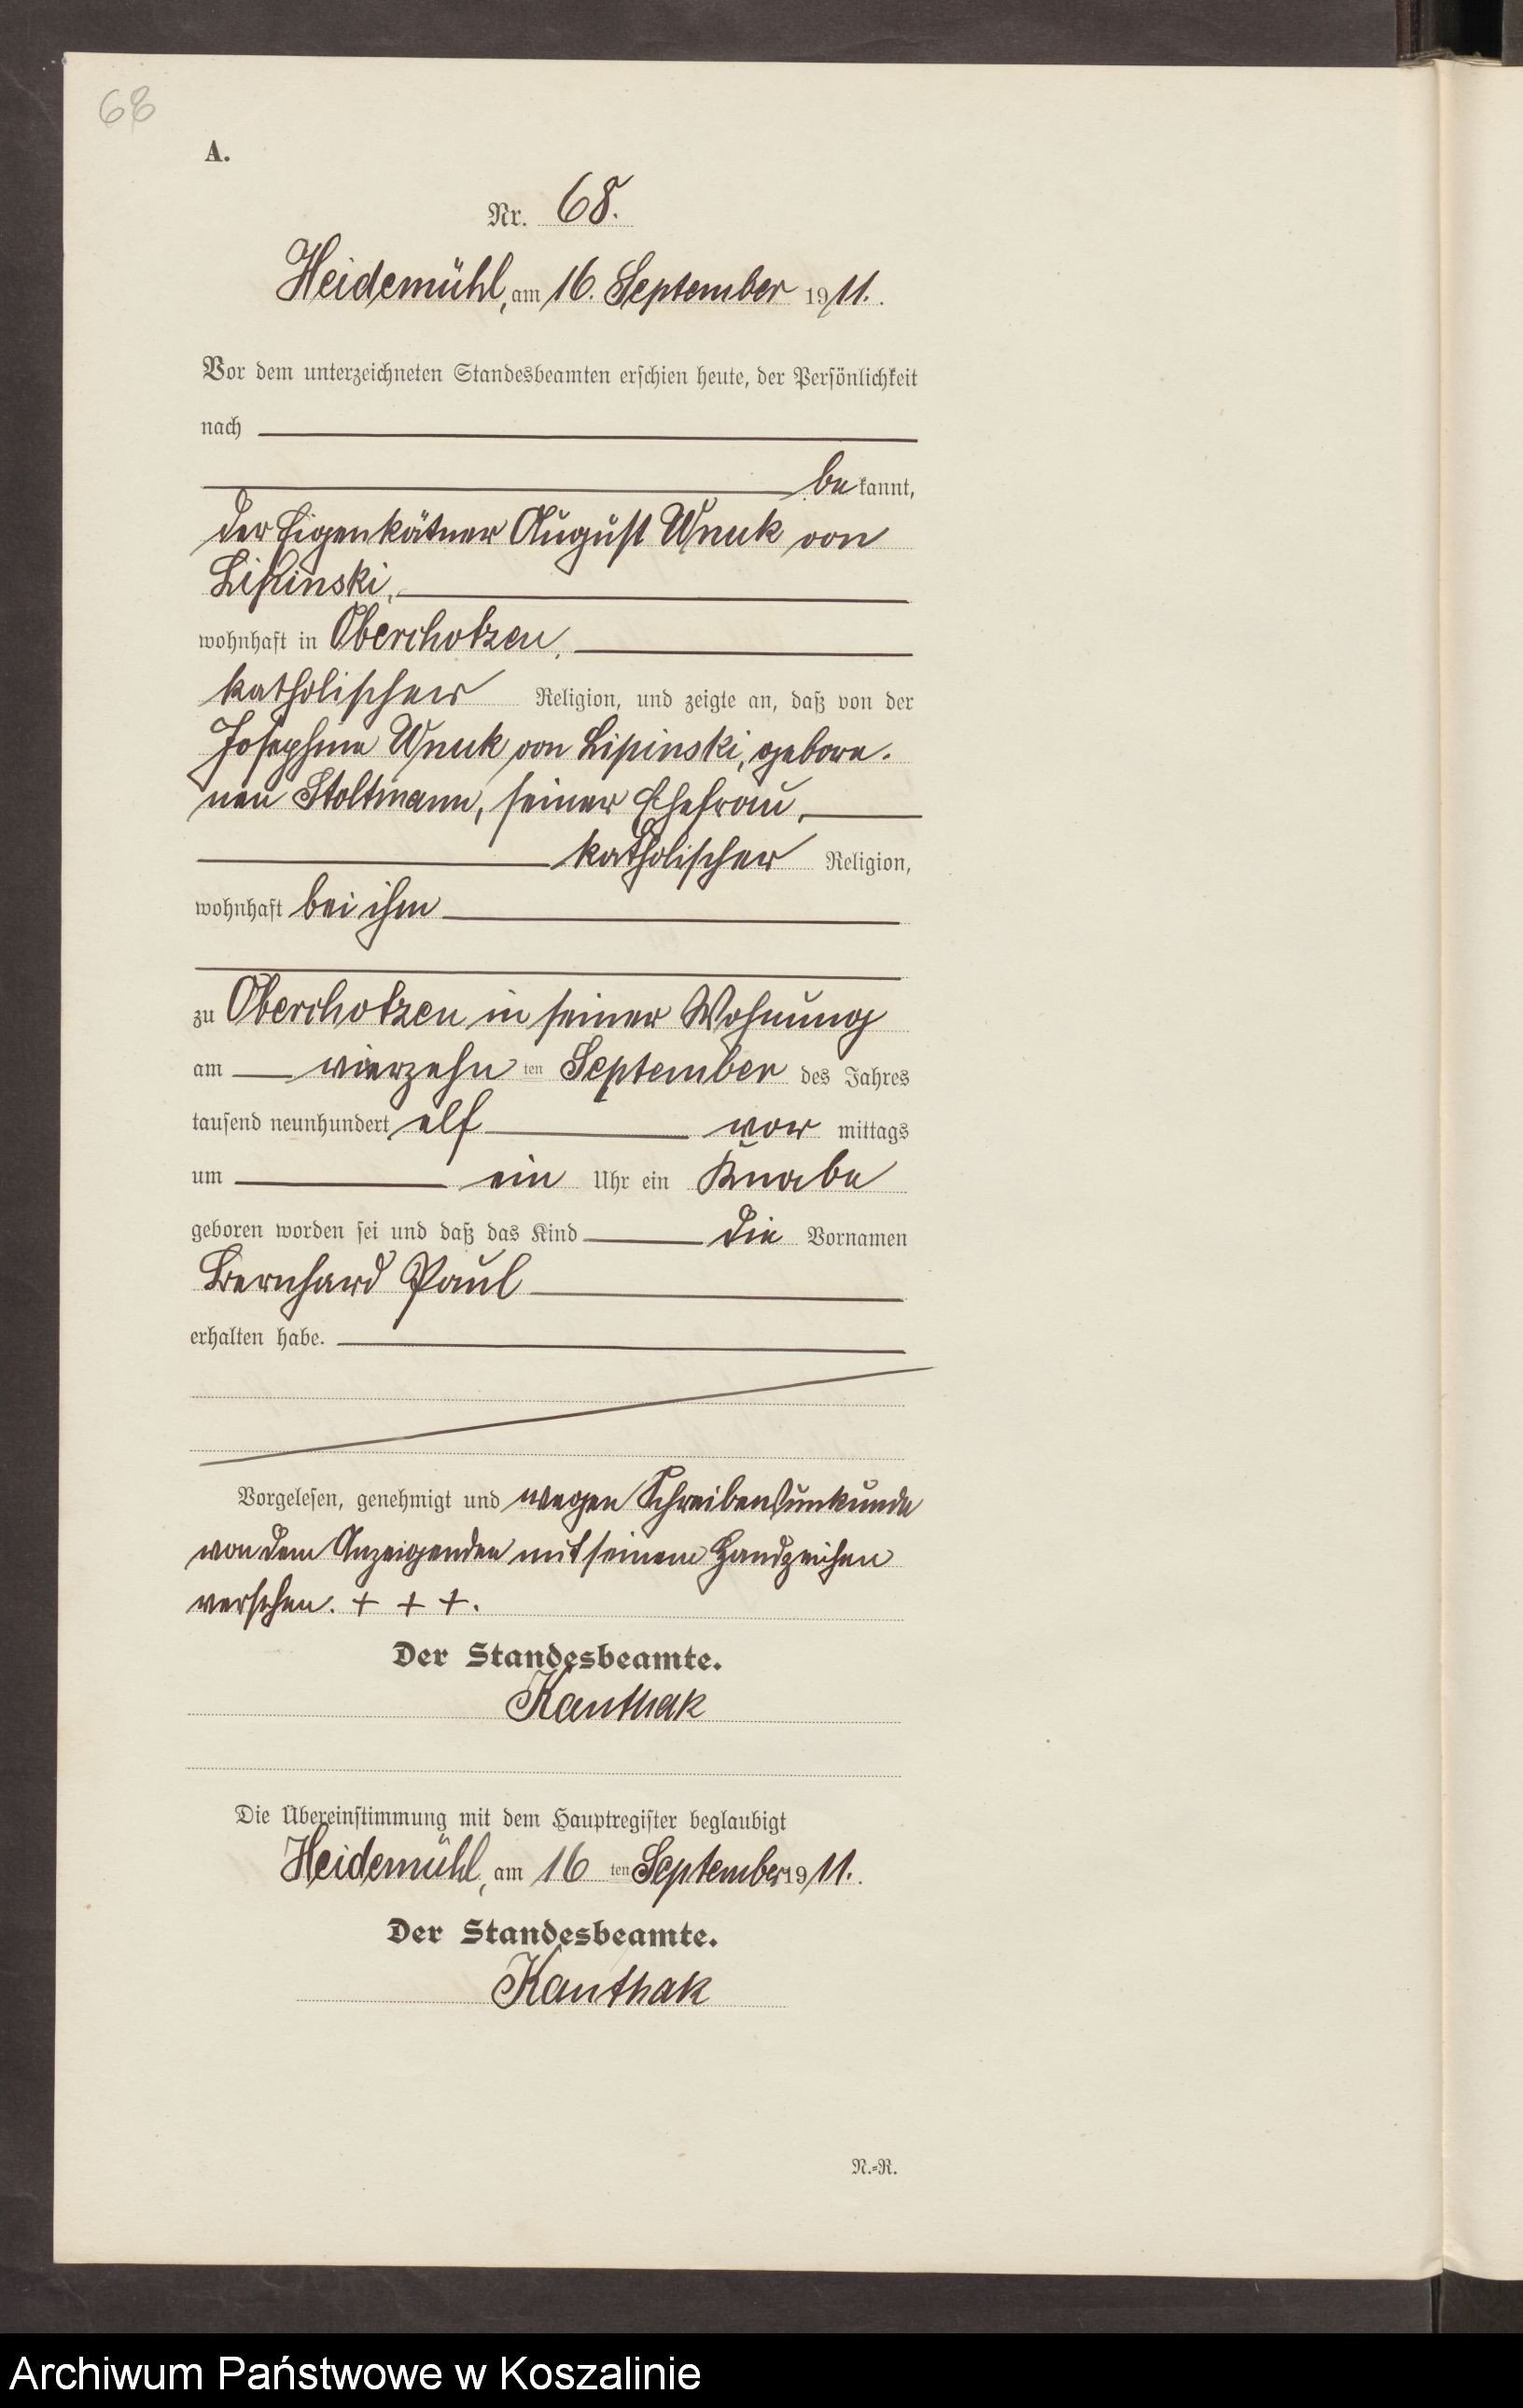 68
A.
Nr. 68.
Heidemühl, am 16. September 1911.
Vor dem unterzeichneten Standesbeamten erschien heute, der Persönlichkeit
nach
bekannt,
der Eigenkätner August Wnuk von
Lipinski,
wohnhaft in Oberchotzen,
katholischer Religion, und zeigte an, daß von der
Josephine Wnuk von Lipinski, gebore-
nen Stoltmann, seiner Ehefrau,
katholischer Religion,
wohnhaft bei ihm
zu Oberchotzen in seiner Wohnung
am vierzehnten September des Jahres
tausend neunhundert elf vormittags
um ein Uhr ein Knabe
geboren worden sei und daß das Kind die Vornamen
Bernhard Paul
erhalten habe.
Vorgelesen, genehmigt und wegen Schreibensunkunde
von dem Anzeigenden mit seinem Handzeichen
versehen. + + +.
Der Standesbeamte.
Kanthak
Die Übereinstimmung mit dem Hauptregister beglaubigt
Heidemühl, am 16ten September 1911.
Der Standesbeamte.
Kanthak
N.-R.
Archiwum Państwowe w Koszalinie